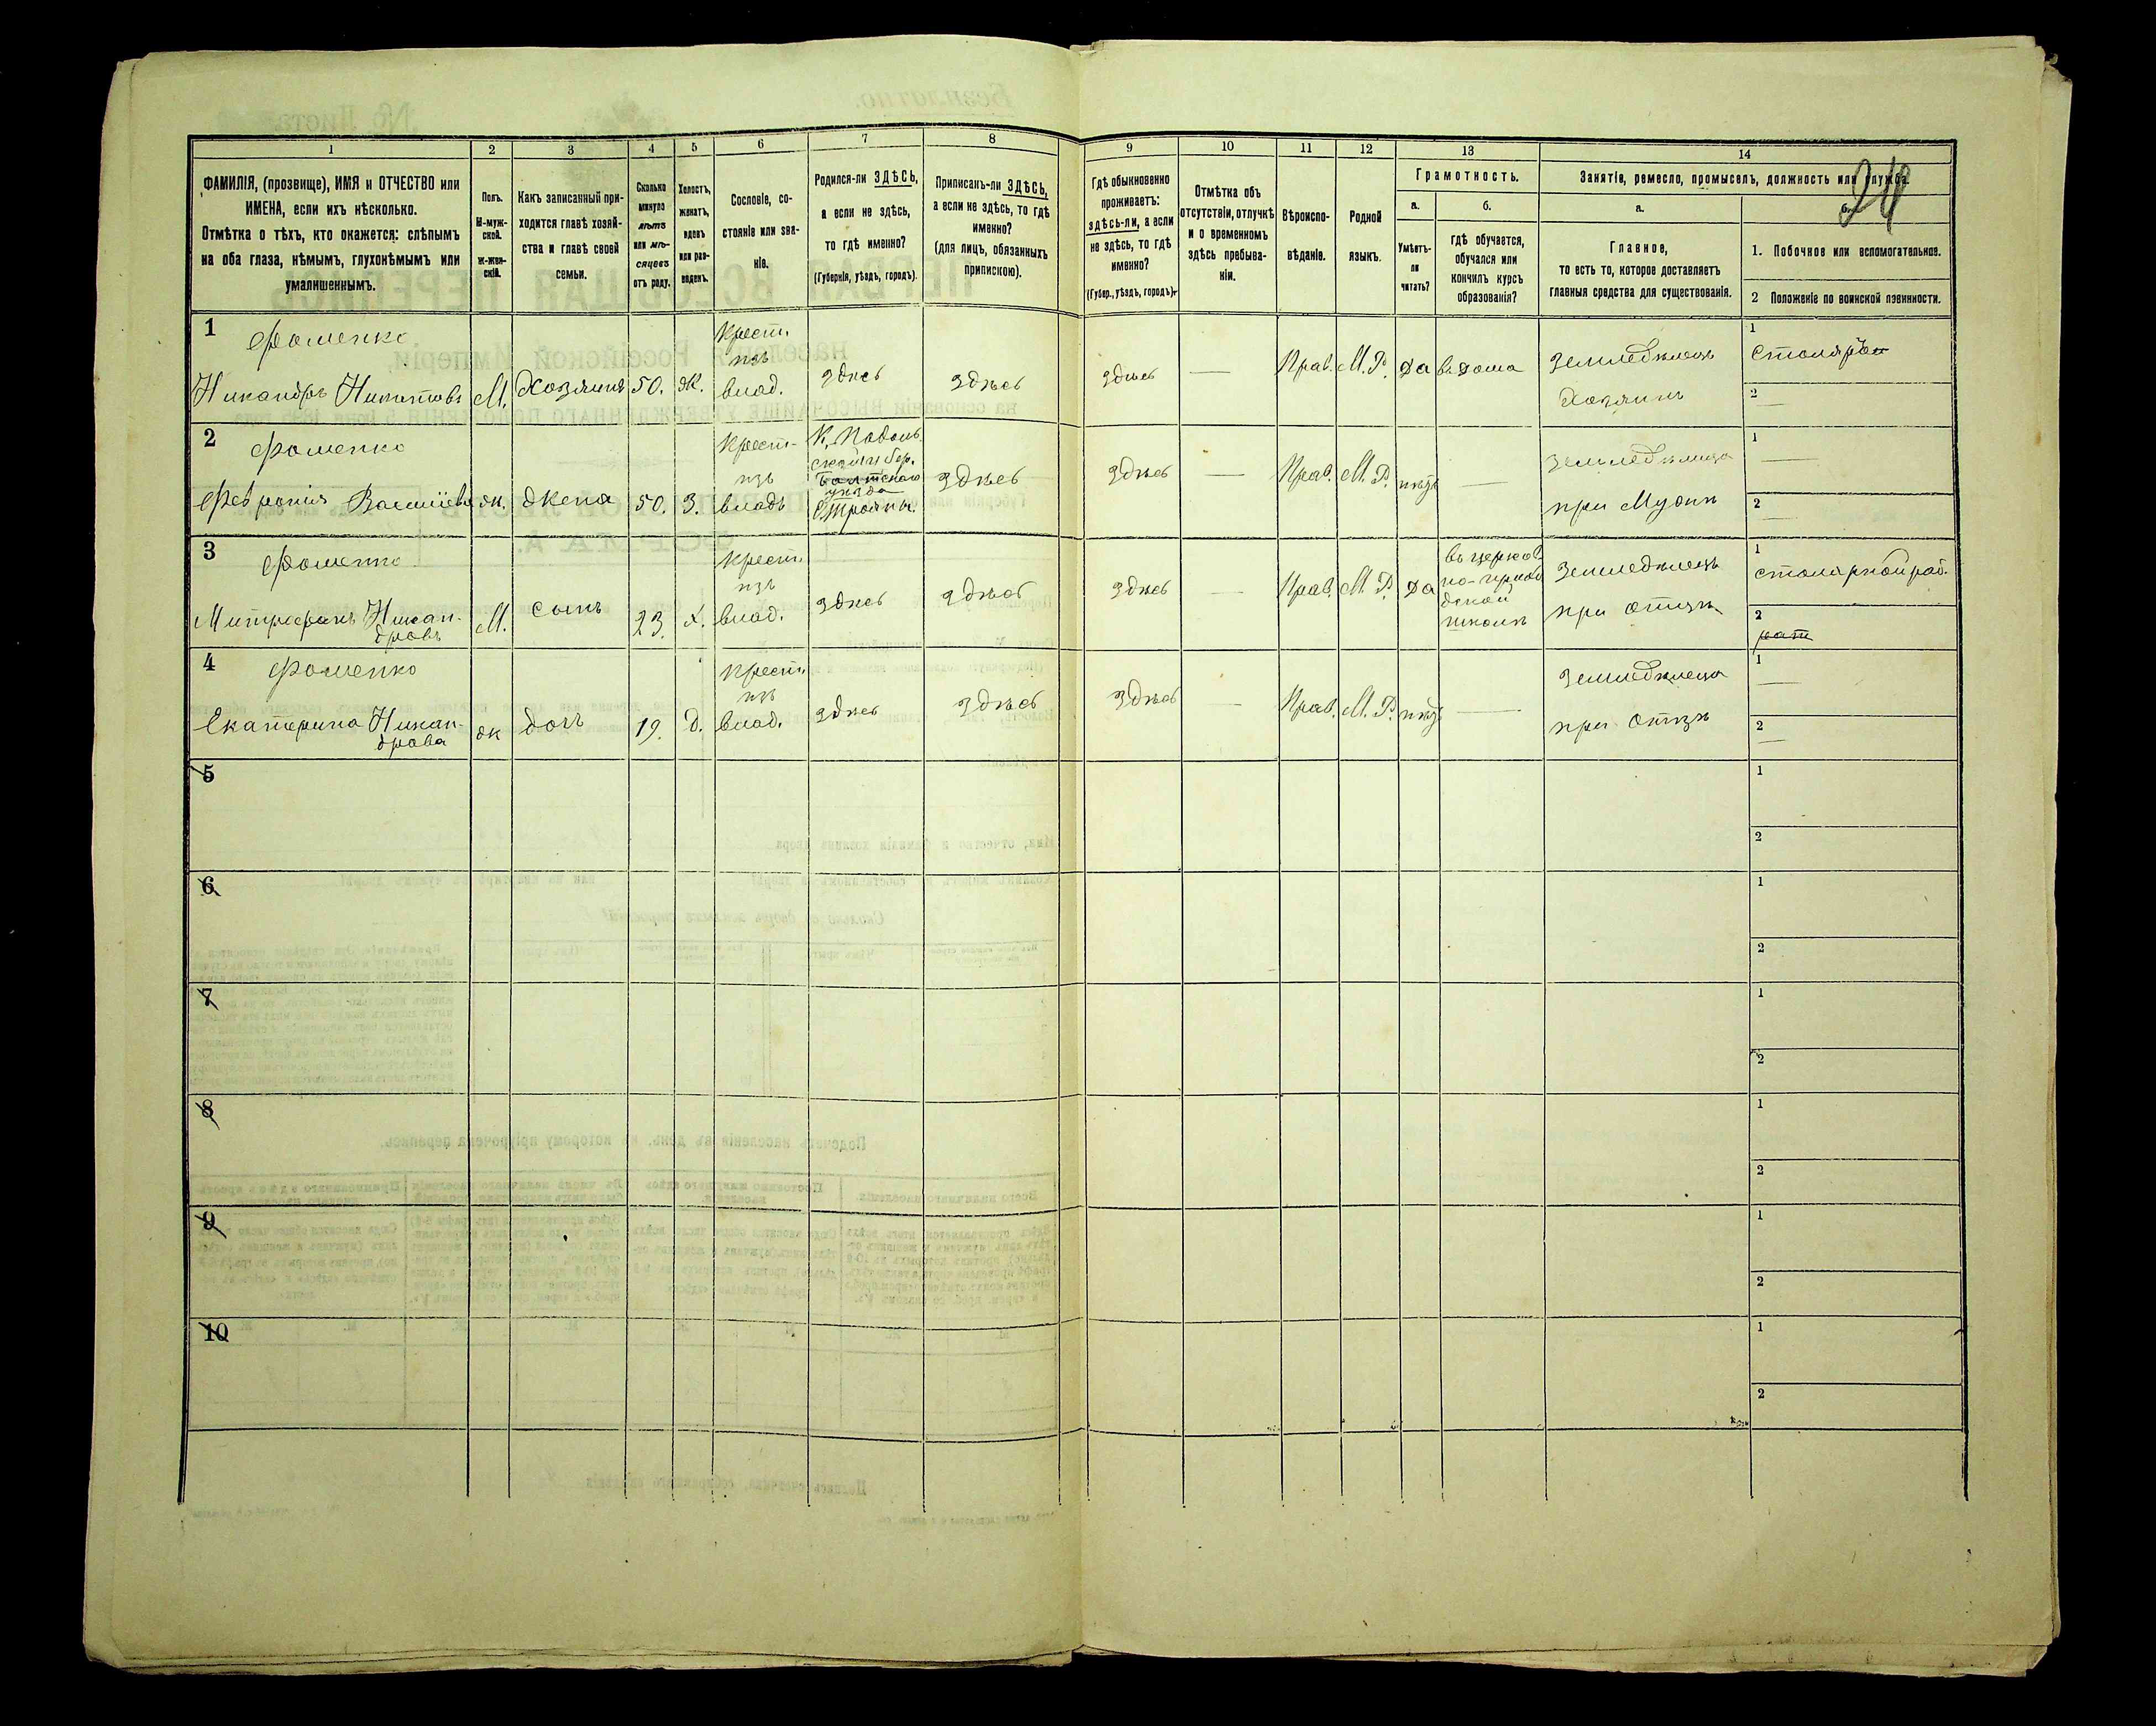 24
1 2 3 4 5 6 7 8 9 10 11 12 13 14
ФАМИЛІЯ, (прозвище), ИМЯ и ОТЧЕСТВО или
ИМЕНА, если ихъ нѣсколько.
Отмѣтка о тѣхъ, кто окажется: слѣпымъ
на оба глаза, нѣмымъ, глухонѣмымъ или
умалишеннымъ.
Полъ.
М-муж-
ской.
ж-жен-
скій.
Какъ записанный при-
ходится главѣ хозяй-
ства и главѣ своей
семьи.
Сколько
минуло
лѣтъ
или мѣ-
сяцевъ
отъ роду.
Холостъ,
женатъ,
вдовъ
или раз-
веденъ.
Сословіе, со-
стояніе или зва-
ніе.
Родился-ли ЗДѢСЬ,
а если не здѣсь,
то гдѣ именно?
(Губернія, уѣздъ, городъ).
Приписанъ-ли ЗДѢСЬ,
а если не здѣсь, то гдѣ
именно?
(для лицъ, обязанныхъ
припискою).
Гдѣ обыкновенно
проживаетъ:
здѣсь-ли, а если
не здѣсь, то гдѣ
именно?
(Губер., уѣздъ, городъ).
Отмѣтка объ
отсутствіи, отлучкѣ
и о временномъ
здѣсь пребыва-
ніи.
Вѣроиспо-
вѣданіе.
Родной
языкъ.
Грамотность.
а.
Умѣетъ-
ли
читать?
б.
гдѣ обучается,
обучался или
кончилъ курсъ
образованія?
Занятіе, ремесло, промыселъ, должность или служба.
а.
Главное,
то есть то, которое доставляетъ
главныя средства для существованія.
б.
1. Побочное или вспомогательное.
2 Положеніе по воинской повинности.
1
Фоменко
Никандръ Никитовъ
М.
Хозяинъ
50.
Ж.
Крест.
изъ
влад.
здѣсь
здѣсь
здѣсь
—
Прав.
М. Р.
да
въ дома
Земледѣлецъ
Хозяинъ
1
2
—
2
Фоменко
Февронія
ж.
жена
50.
З.
Крест.
изъ
владъ
Балтскаго
уѣзда
здѣсь
здѣсь
—
Прав.
М. Р.
нѣтъ
—
Земледѣлица
при Мужѣ
1
—
2
—
3
Фоменко
Митрофанъ Никан-
дровъ
М.
сынъ
23.
х.
Крест.
изъ
влад.
здѣсь
здѣсь
здѣсь
—
Прав.
М. Р.
да
въ церков.
но-приход
ской
школѣ
Земледѣлецъ
при отцѣ
1
столярной раб.
2
4
Фоменко
Екатерина Никан-
дрова
ж
дочь
19.
Д.
Крест.
изъ
влад.
здѣсь
здѣсь
здѣсь
—
Прав.
М. Р.
нѣтъ
—
Земледѣлица
при отцѣ
1
—
2
—
5
1
2
6
1
2
7
1
2
8
1
2
9
1
2
10
1
2